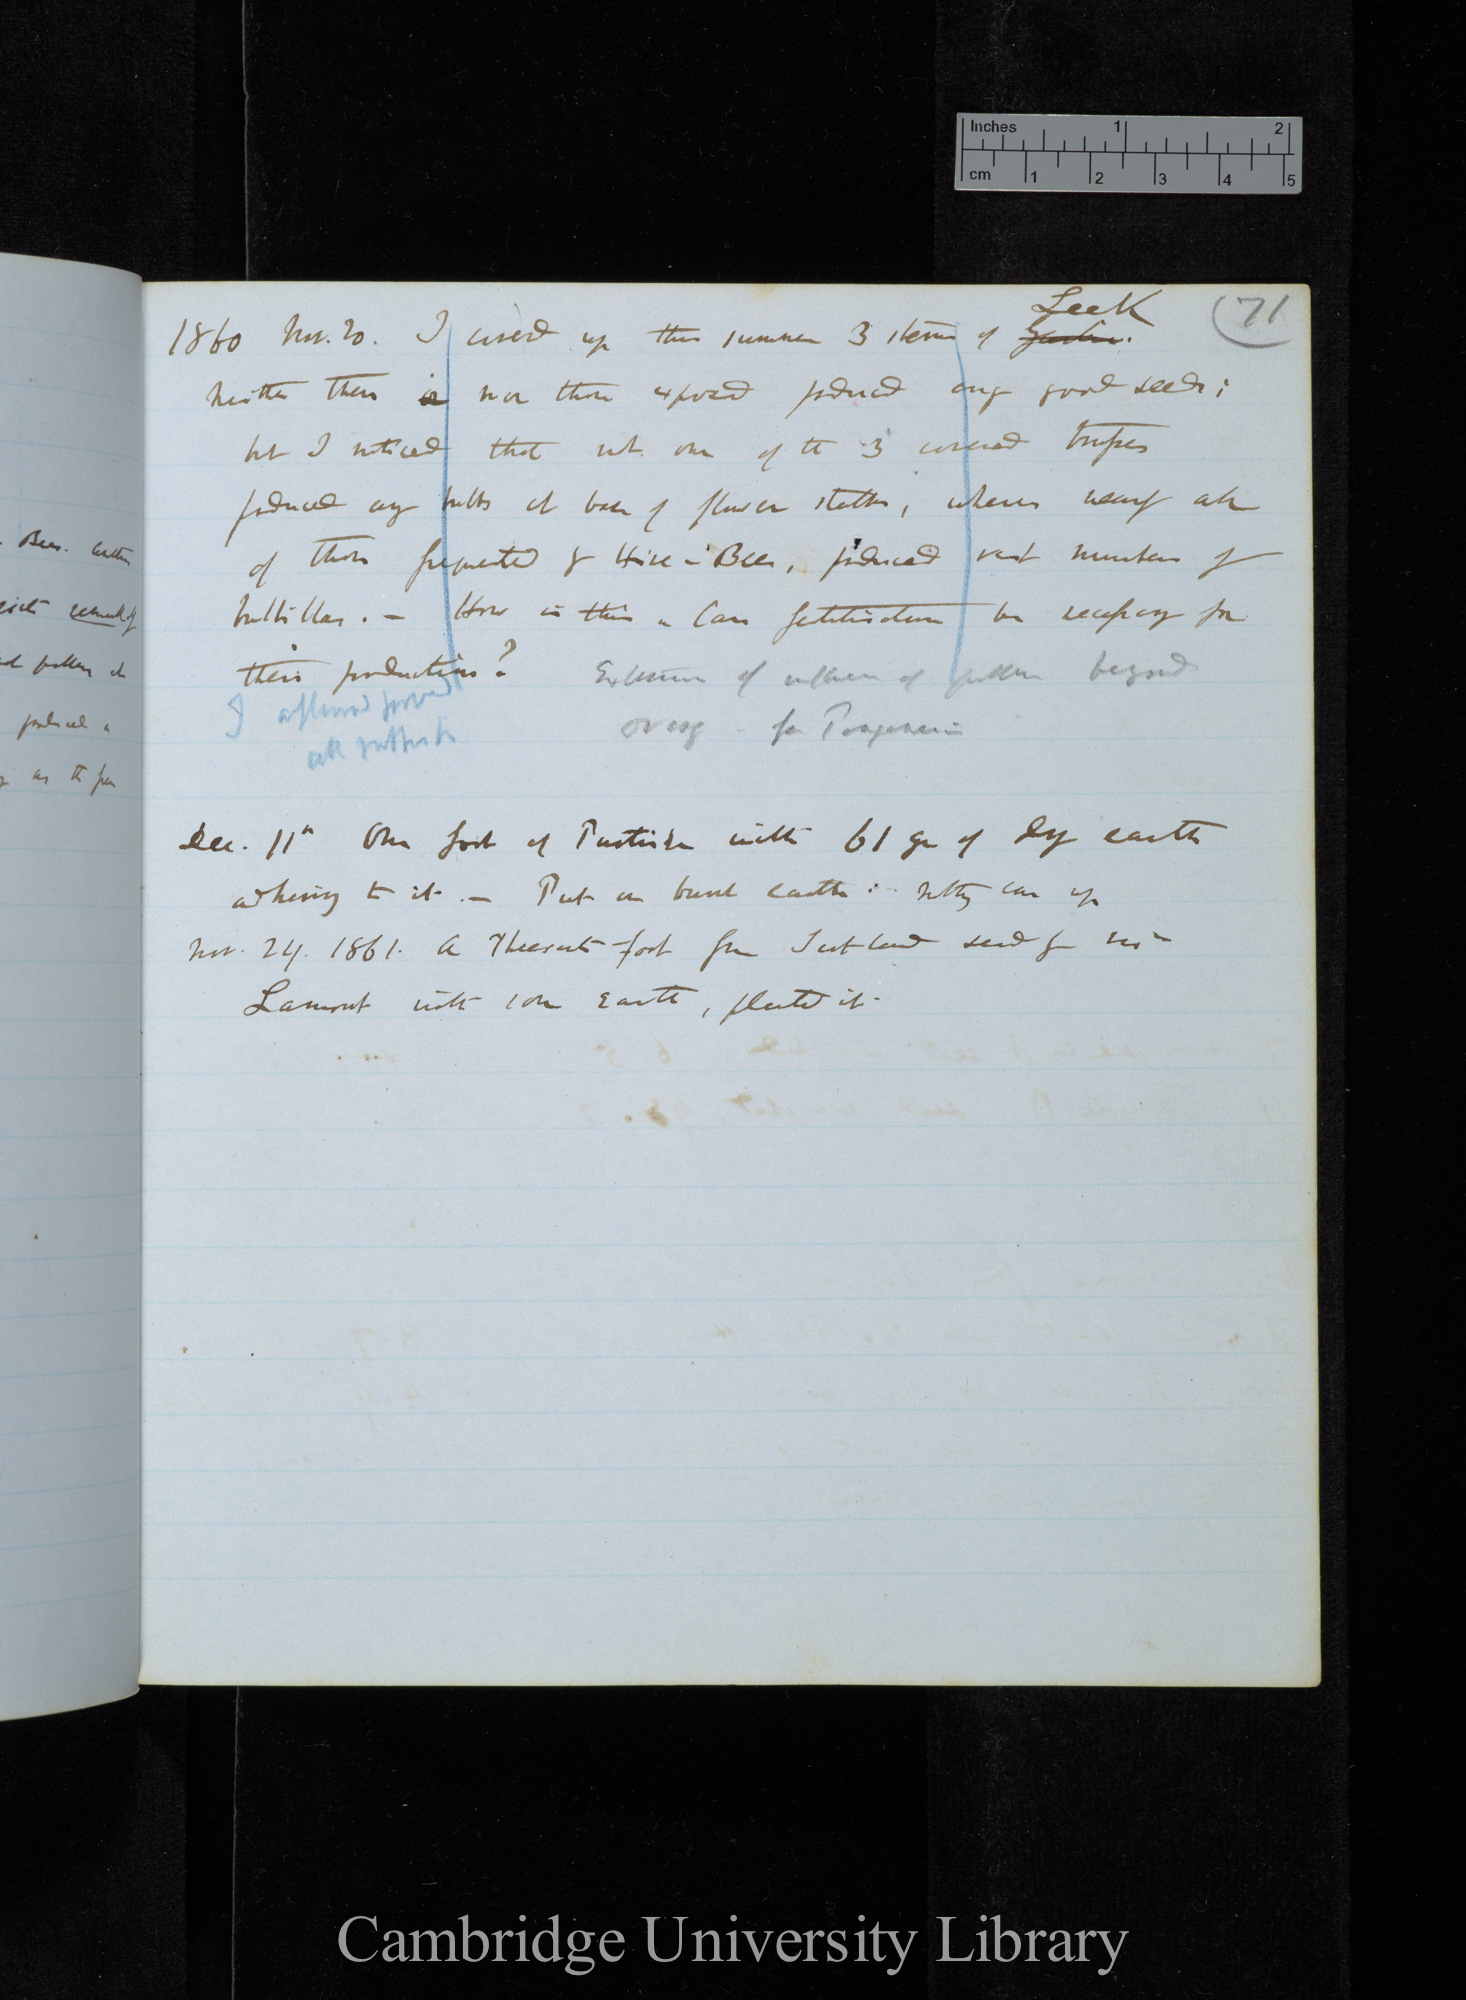 Inches 1 2
cm 1 2 3 4 5
(71
Leek
1860 Nov. 20. I covered up this summer 3 stems of
Neither these nor those exposed produced any good seeds;
but I noticed that not one of the 3 covered trusses
produced any bulbs at base of flower stalks, whereas nearly all
of those frequented by Hive-Bees, produced vast numbers of
bulbillas. — How is this. Can fertilisation be necessary for
their production?
Extension of influence of pollen beyond
ovary
I afterward found
all
Dec. 11th One foot of Partridge with 61 gr of dry earth
adhering to it. — Put on burnt earth: nothing came up
Nov. 24. 1861. A Pheasants foot from Scotland send by
Lamont with some Earth, planted it.
Bees.
pollen
produced
as the
Cambridge University Library